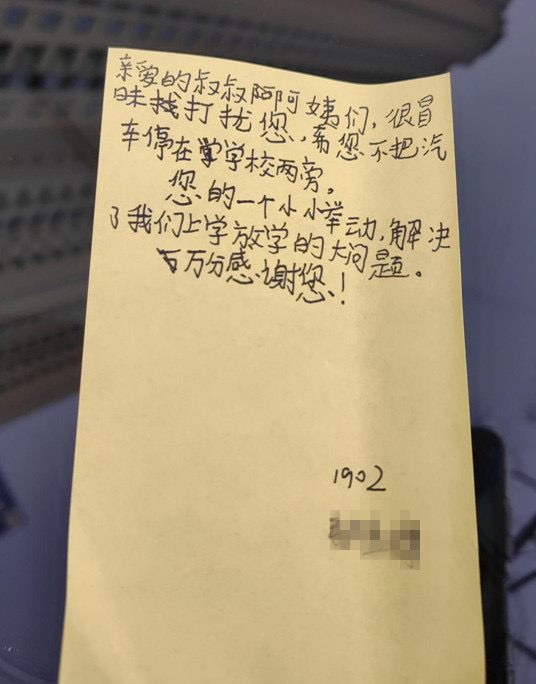 亲爱的叔叔阿阿姨们，很冒
昧找打扰您，希您不把汽
车停在学学校两旁。
您的一个小小举动，解决
了我们上学放学的大问题。
百万分感谢您！
1902